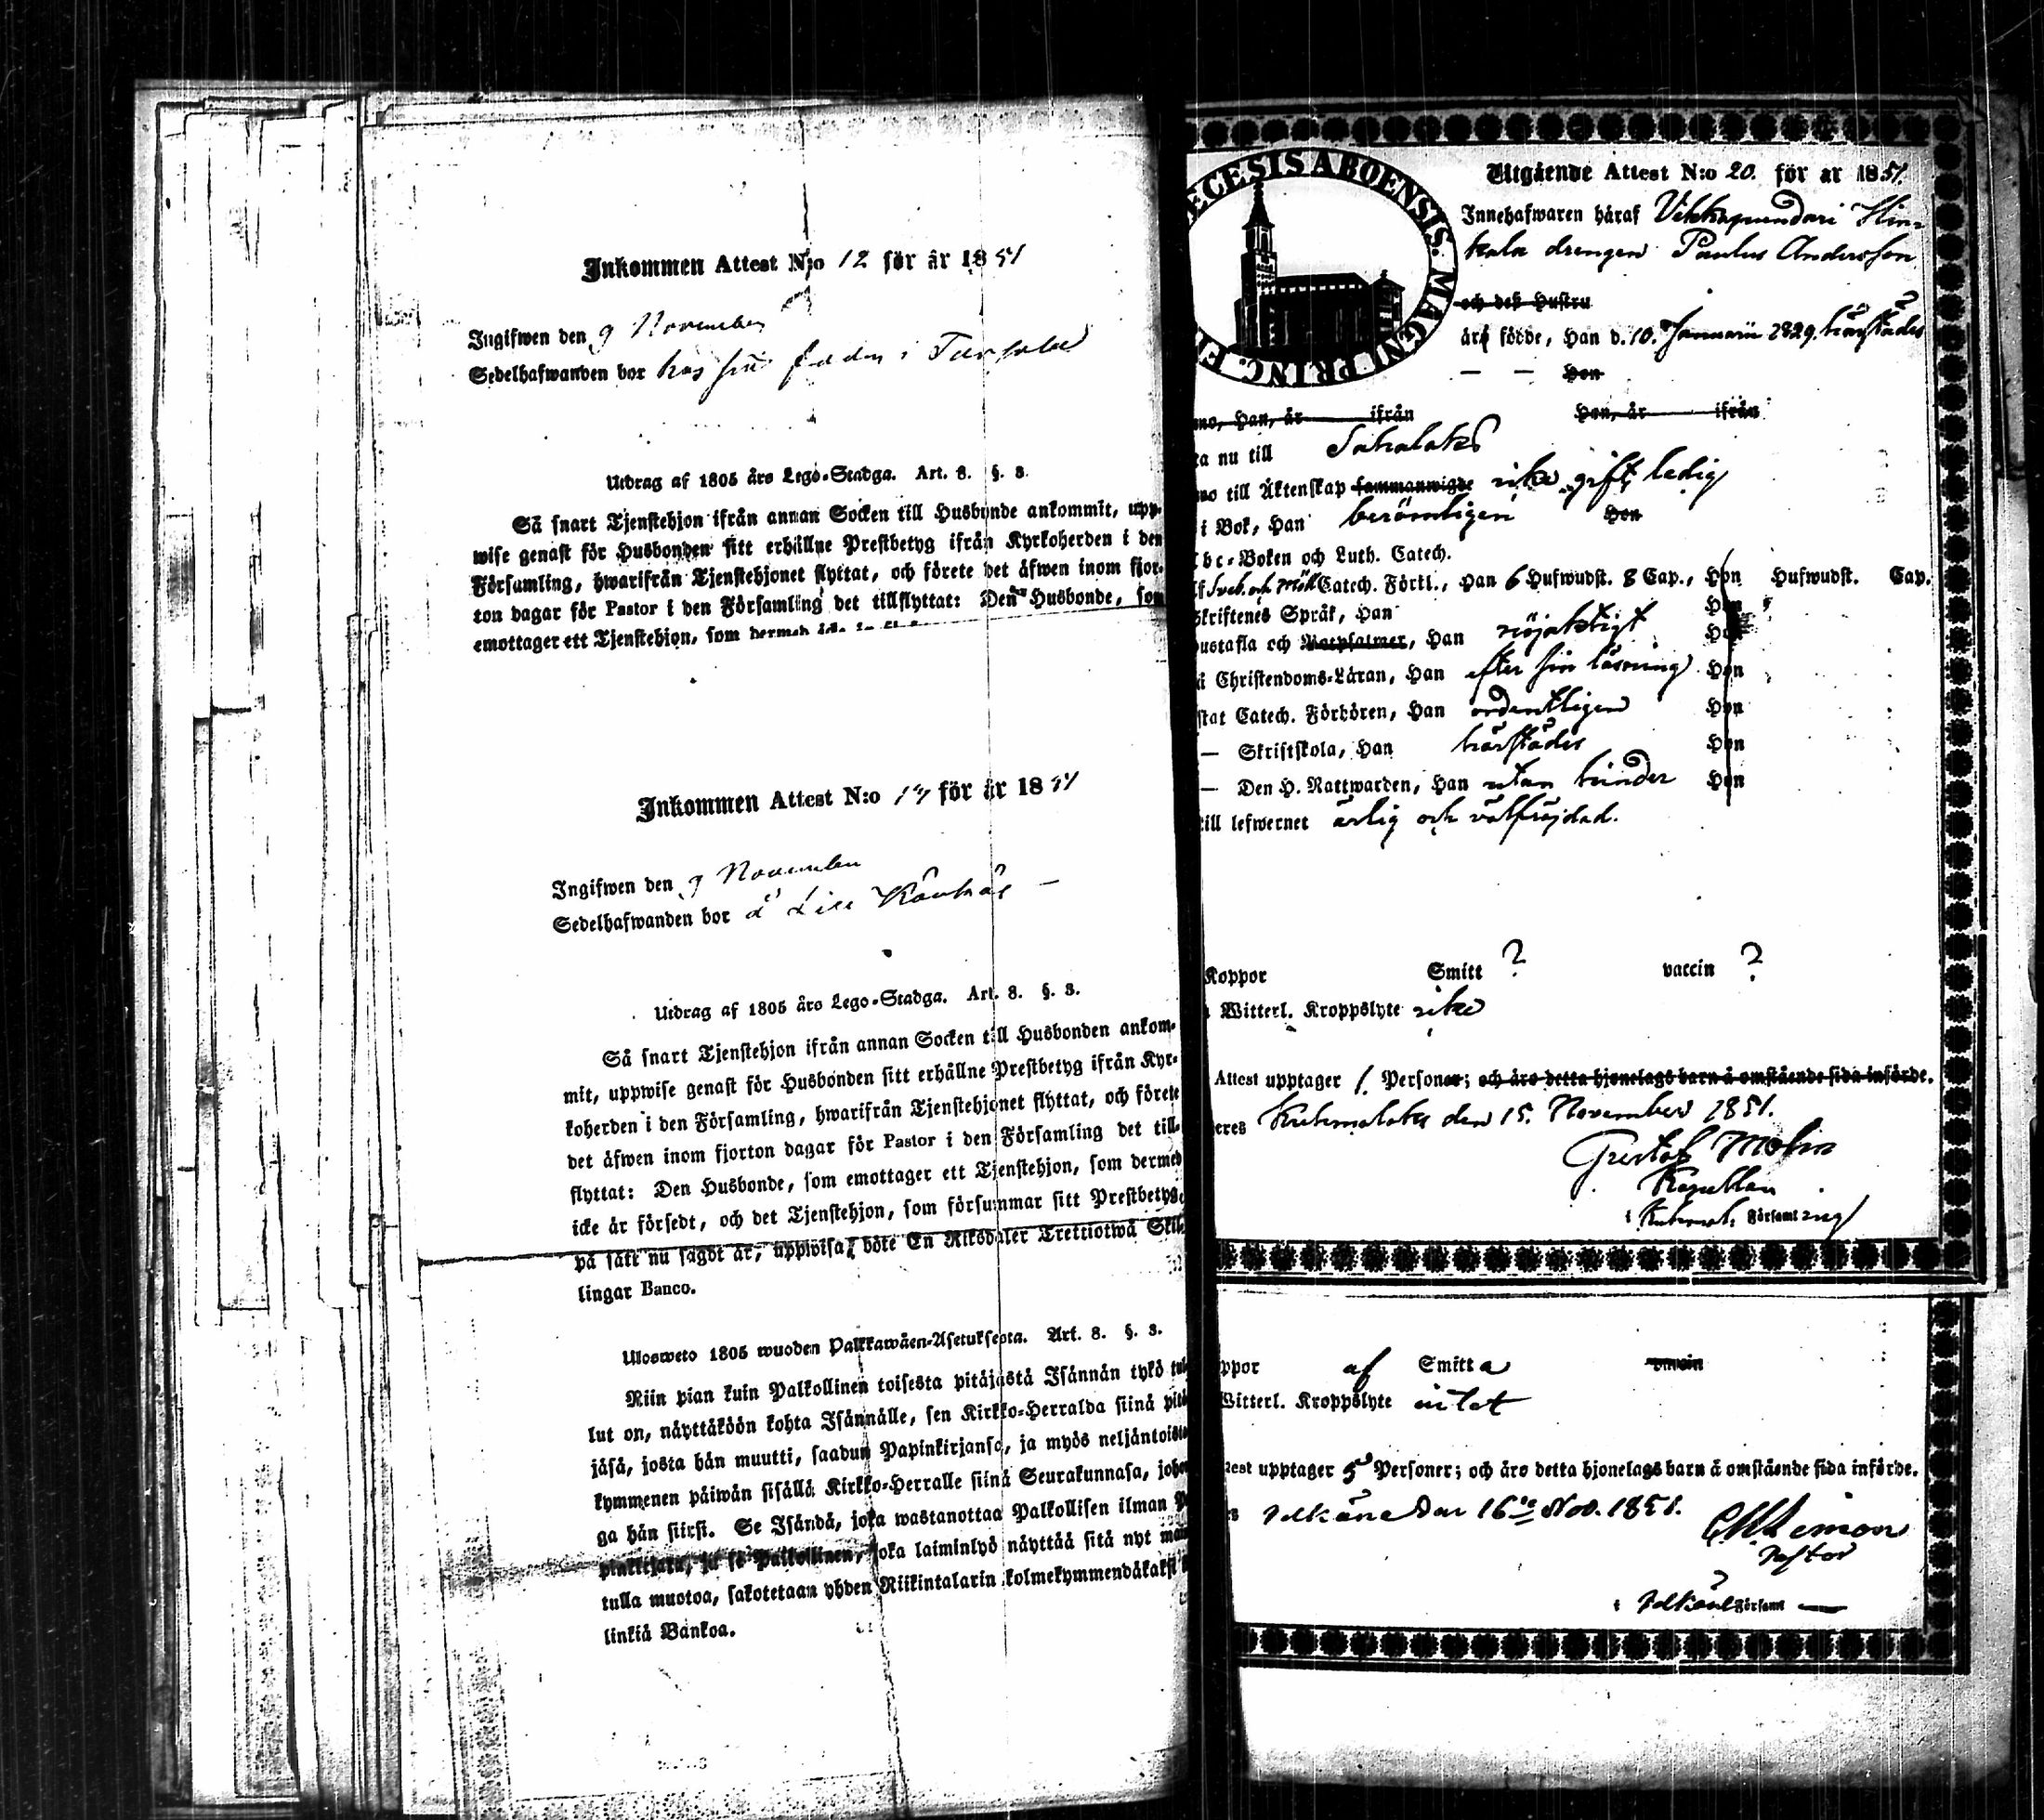 Inkommen Attest N:o 12 för år 1851
Ingifwen den 9 November
Sedelhafwanden bor hos sin fader i
Utdrag af 1805 års Lego-Stadga. Art. 8. §. 3.
Så snart Tjenstehjon ifrån annan Socken till Husbonde ankommit, upp-
wise genast för Husbonden sitt erhållne Prestbetyg ifrån Kyrkoherden i den
Församling, hwarifrån Tjenstehjonet flyttat, och förete det äfwen inom fjor-
ton dagar för Pastor i den Församling det tillflyttat: Den Husbonde, som
emottager ett Tjenstehjon, som dermed
Inkommen Attest N:o 14 för år 1851
Ingifwen den 9 November
Sedelhafwanden bor å Lill
Utdrag af 1805 års Lego-Stadga. Art. 8. §. 3.
Så snart Tjenstehjon ifrån annan Socken till Husbonden ankom-
mit, uppwise genast för Husbonden sitt erhållne Prestbetyg ifrån Kyr-
koherden i den Församling, hwarifrån Tjenstehjonet flyttat, och förete
det äfwen inom fjorton dagar för Pastor i den Församling det till-
flyttat: Den Husbonde, som emottager ett Tjenstehjon, som dermed
icke är försedt, och det Tjenstehjon, som försummar sitt Prestbetyg,
på sätt nu sagdt är, uppwisa, böte En Riksdaler Trettiotwå Skil-
lingar Banco.
Ulosweto 1805 wuoden Palkkawäen-Asetuksesta. Art. 8. §. 3.
Niin pian kuin Palkollinen toisesta pitäjästä Isännän tykö tul-
lut on, näyttäköön kohta Isännälle, sen Kirkko-Herralda siinä pitä-
jäsä, josta hän muutti, saadun Papinkirjansa, ja myös neljäntoista
kymmenen päiwän sisällä Kirkko-Herralle siinä Seurakunnasa, johon-
ga hän siirsi. Se Isändä, joka wastanottaa Palkollisen ilman Pa-
pinkirjata, ja se Palkollinen, joka laiminlyö näyttää sitä nyt mai-
tulla muotoa, sakotetaan yhden Riikintalarin kolmekymmendäkaksi
linkiä Bankoa.
ECESIS ABOENSIS. MAGN. PRINC. F
Utgående Attest N:o 20. för år 1851.
Innehafwaren häraf Vekkapundari Hin-
kala drengen Paulus Andersson
och deß Hustru
äro födde, Han d. 10. Januarii 1829. härstädes
— — Hon
mo, Han, år ifrån Hon, år ifrån
ta nu till Sahalaks
mo till Äktenskap sammanwigde icke gift, ledig
i Bok, Han berömligen Hon
Abc-Boken och Luth. Catech.
f Sveb. och Möll Catech. Förkl., Han 6 Hufwudst. 8 Cap., Hon Hufwudst. Cap.
Skriftenes Språk, Han Hon
Hustafla och Botpsalmer, Han nöjaktigt Hon
å Christendoms-Läran, Han efter sin läsning Hon
stat Catech. Förhören, Han ordentligen Hon
— Skriftskola, Han härstädes Hon
— Den H. Nattwarden, Han utan hinder Hon
till lefwernet ärlig och välfräjdad.
Koppor Smitt ? vaccin ?
Witterl. Kroppslyte icke
Attest upptager 1. Personer; och äro detta hjonelags barn å omstående sida införde.
eres Kuhmalaks den 15. November 1851.
Gustaf Molin
Kapellan
i Kuhmal. Församling
ppor af Smitta vaccin
Witterl. Kroppslyte intet
test upptager 5 Personer; och äro detta hjonelags barn å omstående sida införde.
Pelkäne den 16de Nov. 1851.
Pastor
i Pelkäne Församl —